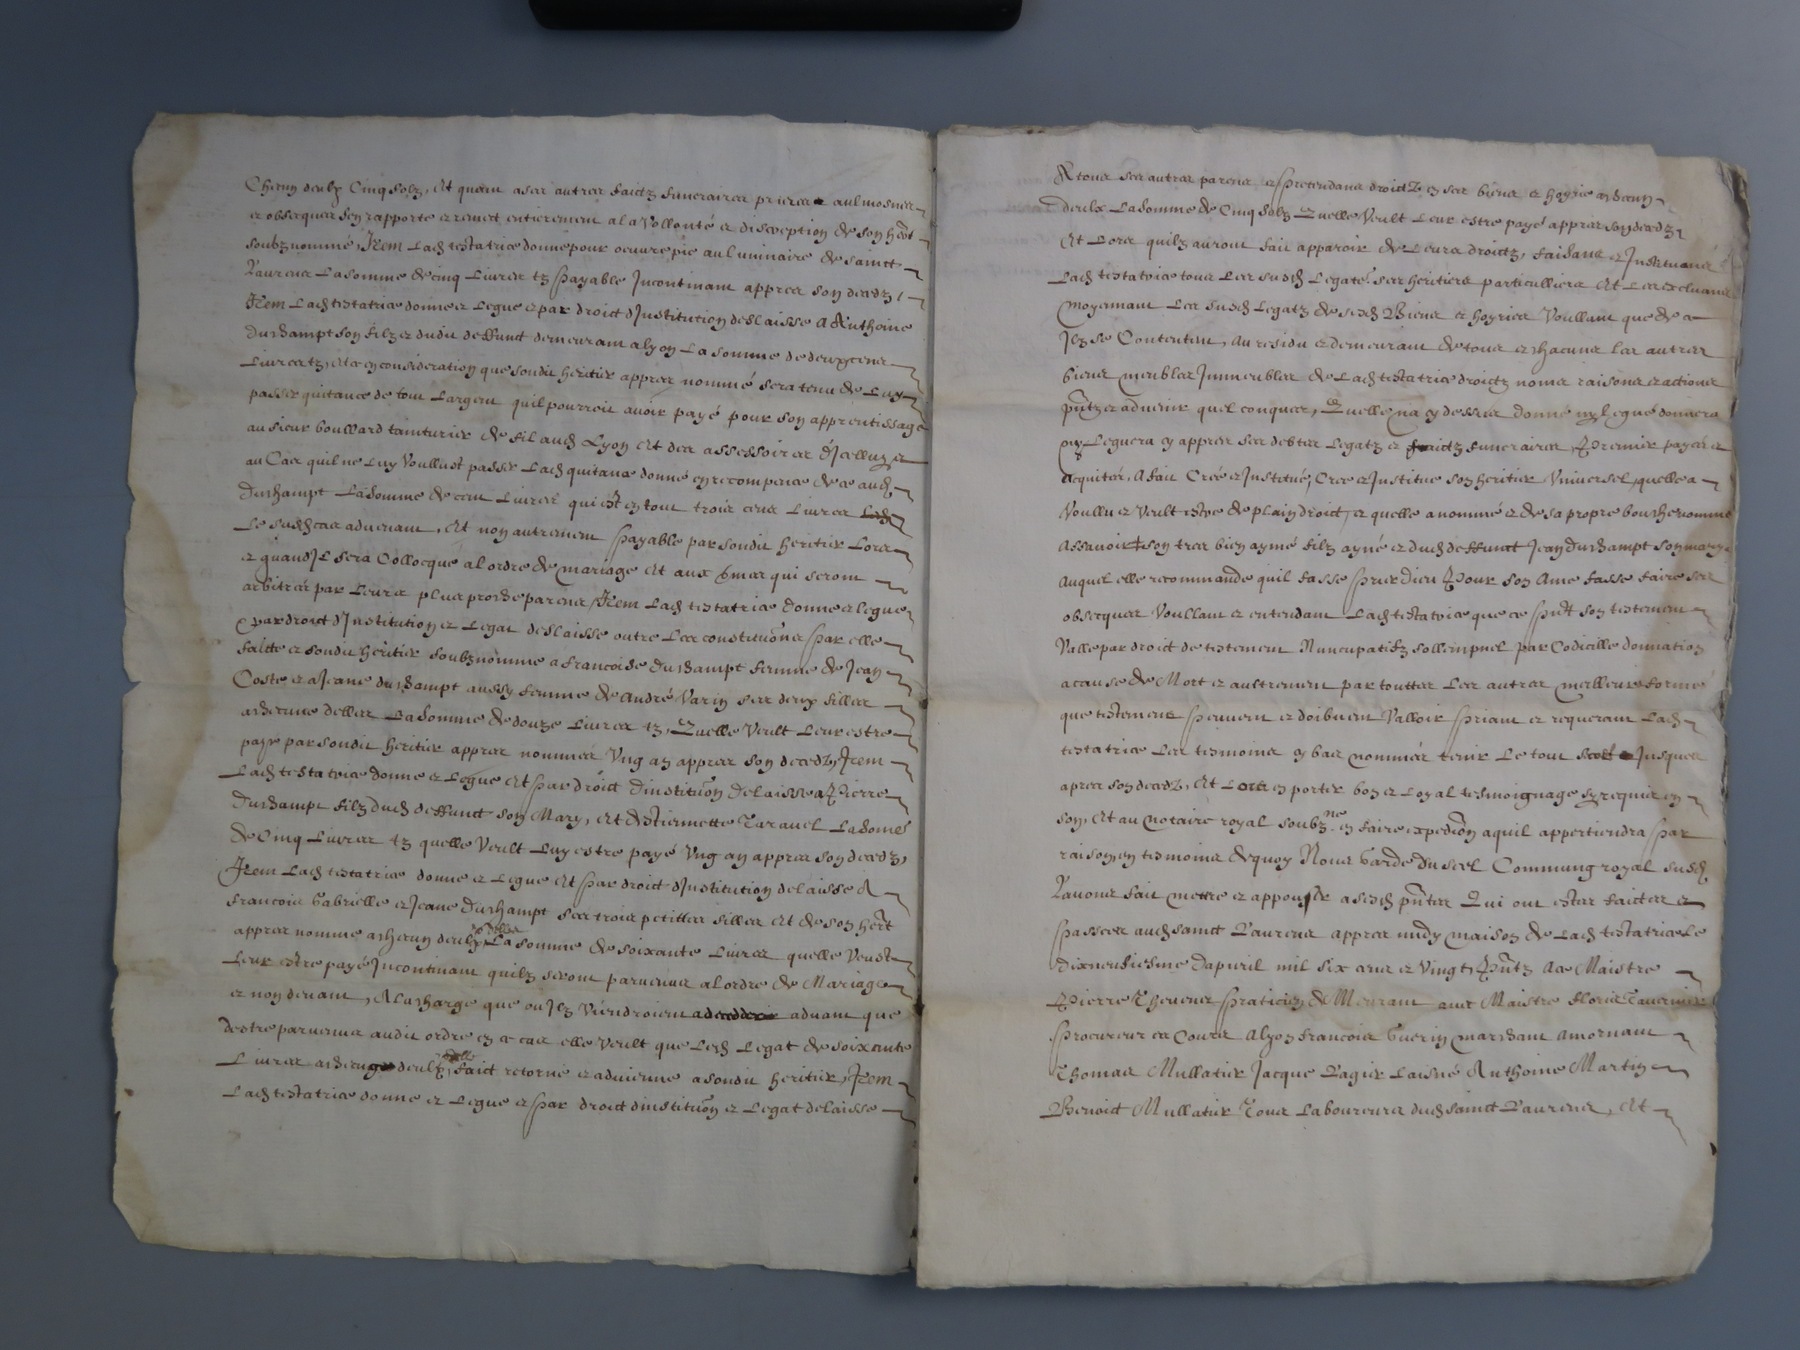 Chacun deulx Cinq solz, Et quant a ses autres faictz funeraires prieres aulmosnes
et obseques sen rapporte et remect entierement a la Vollonté et discreption de son hert
soubz nommé, Item Lad testatrice donne pour oeuvre pie au luminaire de sainct
Laurens La somme de cinq Livres tz payable Incontinant appres son decedz,
Item Lad testatrice donne et Legue et par droict dInstitution deslaisse A Anthoine
Durchampt son filz et dudit deffunct demeurant a lyon La somme de deux cens
Livres tz, et ce en consideration que sondit heritier appres nommé sera tenu de Luy
passer quitance de tout Largent quil pourroit avoir payé pour son apprentissage
au sieur boullard tainturier de fil aud Lyon et des assessoires dIcelluy et
au Cas quil ne Luy Voullust passer Lad quitance donne en recompence de ce aud
Durchampt La somme de cent Livres qui est en tout trois cens Livres
Le susd cas advenant, Et non autrement payable par sondit heritier Lors
et quand Il sera Collocque a lordre de mariage et aux termes qui seront
arbitrés par Leurs plus proche parens, Item Lad testatrice donne et legue
par droict dInstitution et Legat deslaisse outre Les constitutions par elle
faitte et sondit heritier soubz nommé a francoise Durchampt femme de Jean
Coste et a Jeane durchampt aussy femme de André Varin ses deux filles
a chacune delles La somme de douze Livres tz, Quelle Veult Leur estre
payé par sondit heritier appres nommée Ung an appres son decedz, Item
Lad testatrice donne et Legue Et par droict dinstitution delaisse a Pierre
Durchampt filz dud deffunct son Mary, et de stiennette Taravel La somme
de Cinq Livres tz quelle Veult Luy estre payé Ung an appres son decedz,
Item Lad testatrice donne et Legue et par droict dInstitution delaisse A
francois Gabrielle et Jeane Durchampt ses trois petittes filles et de son hert
appres nomme a chacun deulx La somme de soixante Livres quelle Veult
Leur estre payé Incontinant quilz seront parvenus a lordre de Mariage
et non devant, A la charge que ou Ilz Viendroient a decedder advant que
destre parvenus audit ordre en ce cas elle Veult que Led Legat de soixante
Livres a chacung deulx, faict retorne et advienne a sondit heritier, Item
Lad testatrice donne et Legue et par droict dinstitution et Legat delaisse
A tous ses autres parens et pretendans droictz en ses biens et hoyrie a chacun
deulx La somme de Cinq solz Quelle Veult Leur estre payé appres son decedz
Et Lors quilz auront fait apparoir de Leurs droictz, faisant et Instituant
Lad testatrice tous Les susd Legatés ses heritiers particulliers et Les excluant
moyennant Les susd Legatz de sesd Biens et hoyries Voullant que de ce
Ilz se Contentent, au residu et demeurant de tous et chacuns les autres
biens meubles Immeubles de Lad testatrice droictz noms raisons et actions
pntz et advenir quelconques, Quelle na cy dessus donné ny legué donnera
ou Leguera cy appres ses debtes Legatz et faictz funeraires Premier payes et
acquités, A fait Creé et Institué, Cree et Institue son heritier Universel quelle a
Voullu et Veult estre de plain droict, et quelle a nommé et de sa propre bouche nomme
Assavoir son tres bien aymé filz ayné et dud deffunct Jean Durchampt son mary
Auquel elle recommande quil fasse prier Dieu Pour son Ame fasse faire ses
obseques Voullant et entendant Lad testatrice que ce pnt son testement
Valle par droict de testement Nuncupatifz sollempnel par Codicille donnation
a cause de Mort et aultrement par touttes Les autres meilleurs forme
que testemens peuvent et doibvent Valloir priant et requerant Lad
testatrice Les tesmoins cy bas nommés tenir Le tout secret Jusques
apres son decedz, Et Lors en porter bon et Loyal tesmoignage sy requis en
son, Et au notaire royal soubzne en faire expedion a quil appertiendra par
raison, en tesmoins de quoy Nous Garde du scel Commung royal susd
Lavons fait mettre et appouser a sesd pntes Qui ont estes faictes et
passees aud sainct Laurens appres midy maison de Lad testatrice Le
dixneufiesme dapvril mil six cens et Vingt, Pntz Ace Maistre
Pierre Thevenes praticien de Meurant avec Maistre floris Tavernier
procureur es Cours a lyon francois Guerin marchant a mornant
Thomas Mullatier Jacque Ragier Laisné Anthoine Martin
Benoict Mullatier Tous Laboureurs dud sainct Laurens, Et